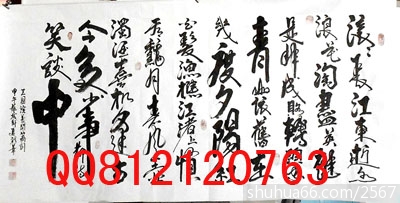 滚滚長江東逝水
浪花淘盡英雄
是非成敗轉頭空
青山依舊在
幾度夕陽紅
白髮漁樵江渚上慣
看秋月春風一壺
濁酒喜相逢古
今多少事都付
笑談中
QQ812120763
shuhua66.com/2567